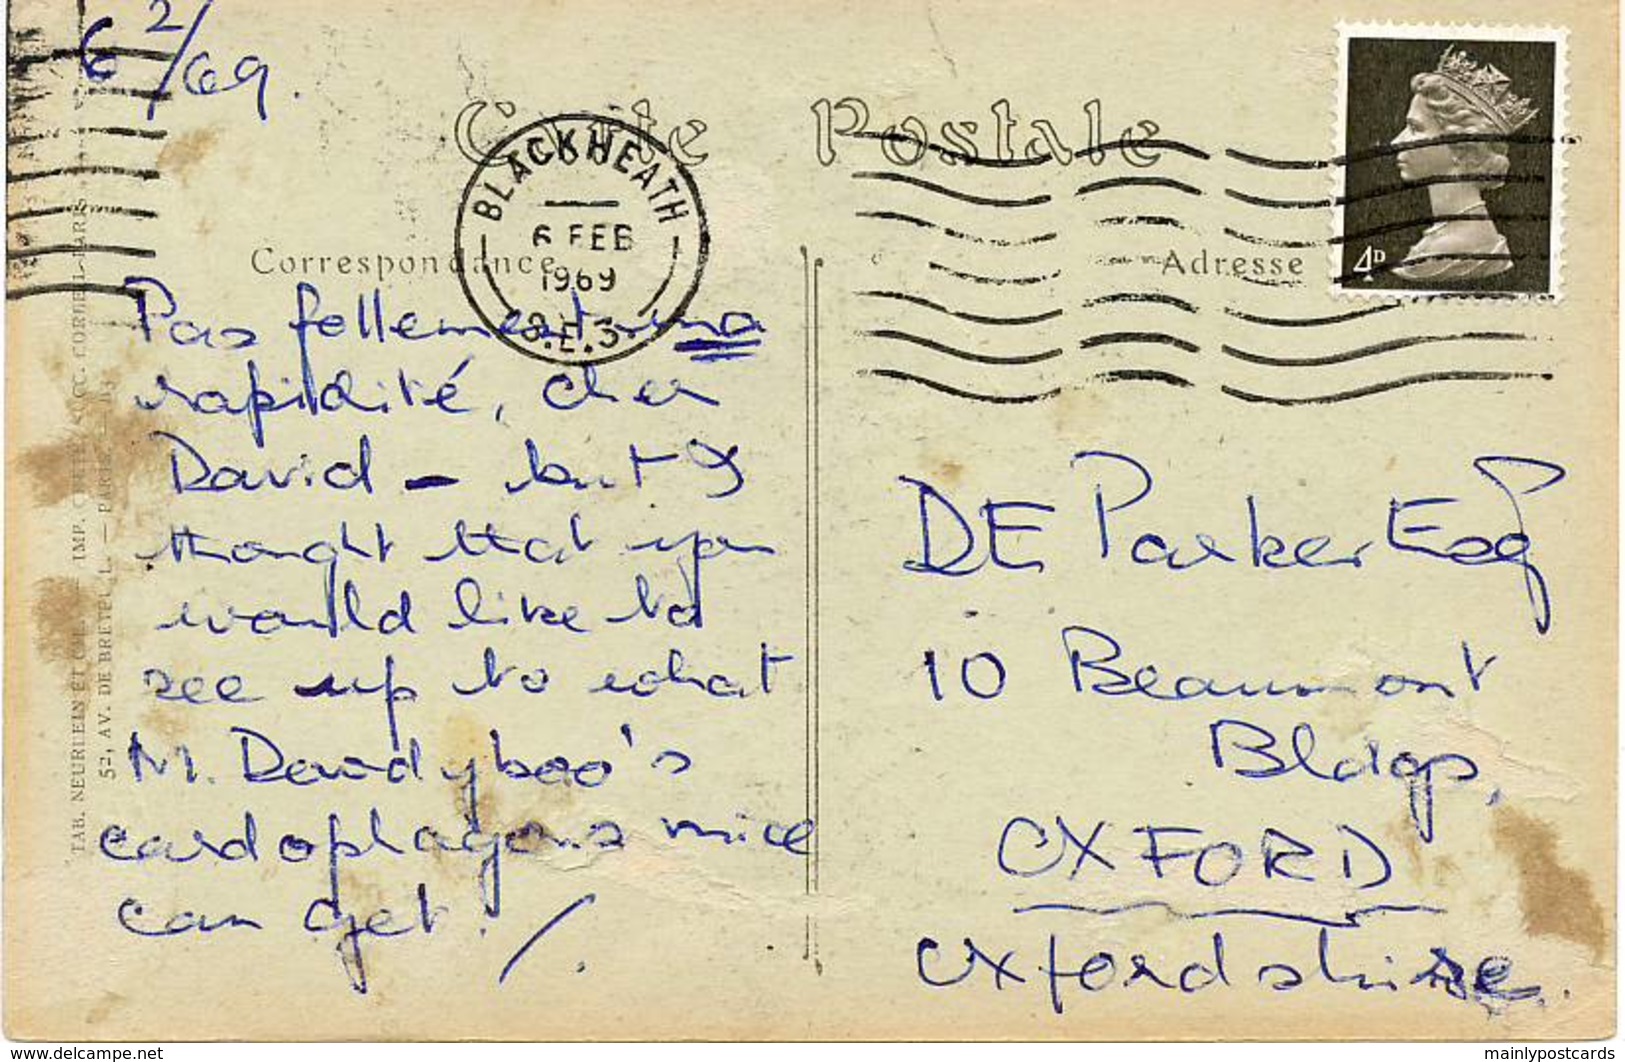 6 2/69.
Carte Postale
BLACKHEATH
6 FEB
1969
S.E.3.
4D
Correspondance
Adresse
Pas follement ma
rapidité, cher
David - but I
thought that you
would like to
see up to what
M.
cardophagous mice
can get!
DE Parker Esq
10 Beaumont
Bldgs,
OXFORD
Oxfordshire.
52, AV. DE BRETEUIL — PARIS
www.delcampe.net
mainlypostcards